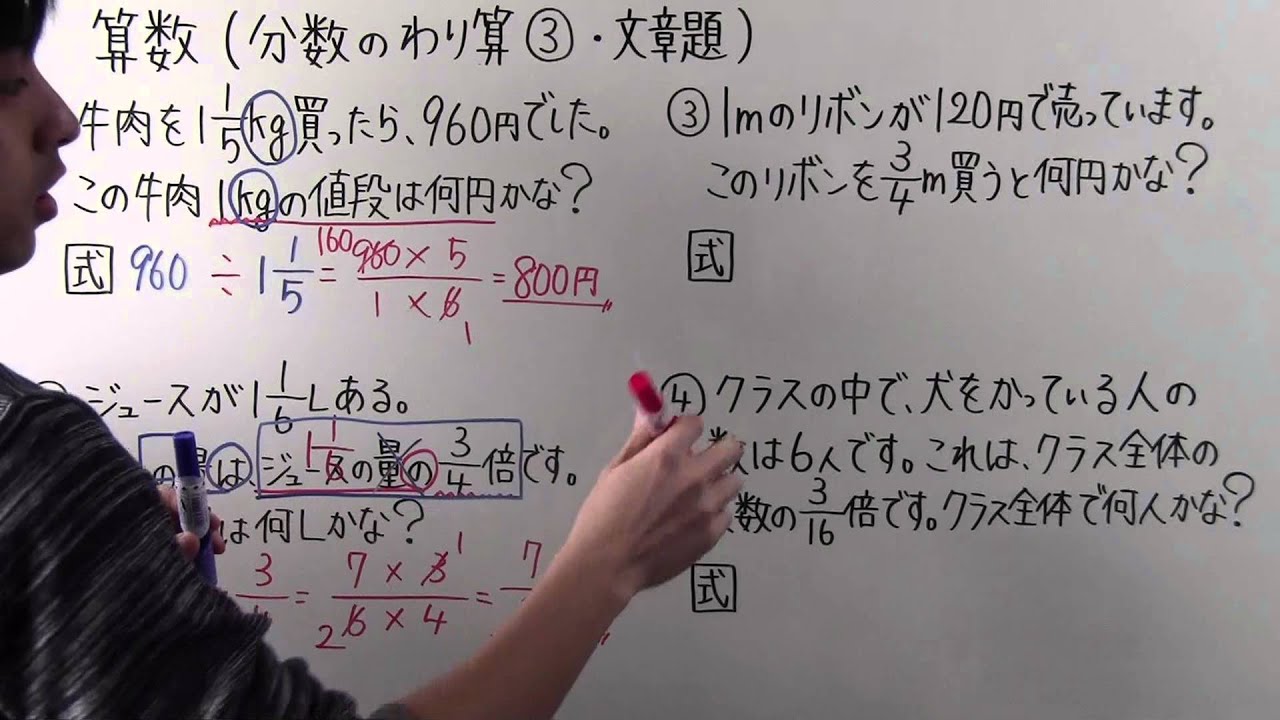 算数(分数のわり算③・文章題)
牛肉を1 1/5 kg買ったら、960円でした。
この牛肉1kgの値段は何円かな?
式 960 ÷ 1 1/5 = 160 960 × 5 / 1 × 6 1 = 800円
ジュースが1 1/6 Lある。
は、ジュースの量の 3/4 倍です。
1 1/6
は何Lかな?
3 = 7 × 3 1 / 2 6 × 4 = 7
③ 1mのリボンが120円で売っています。
このリボンを 3/4 m買うと何円かな?
式
④ クラスの中で、犬をかっている人の
数は6人です。これは、クラス全体の
数の 3/16 倍です。クラス全体で何人かな?
式